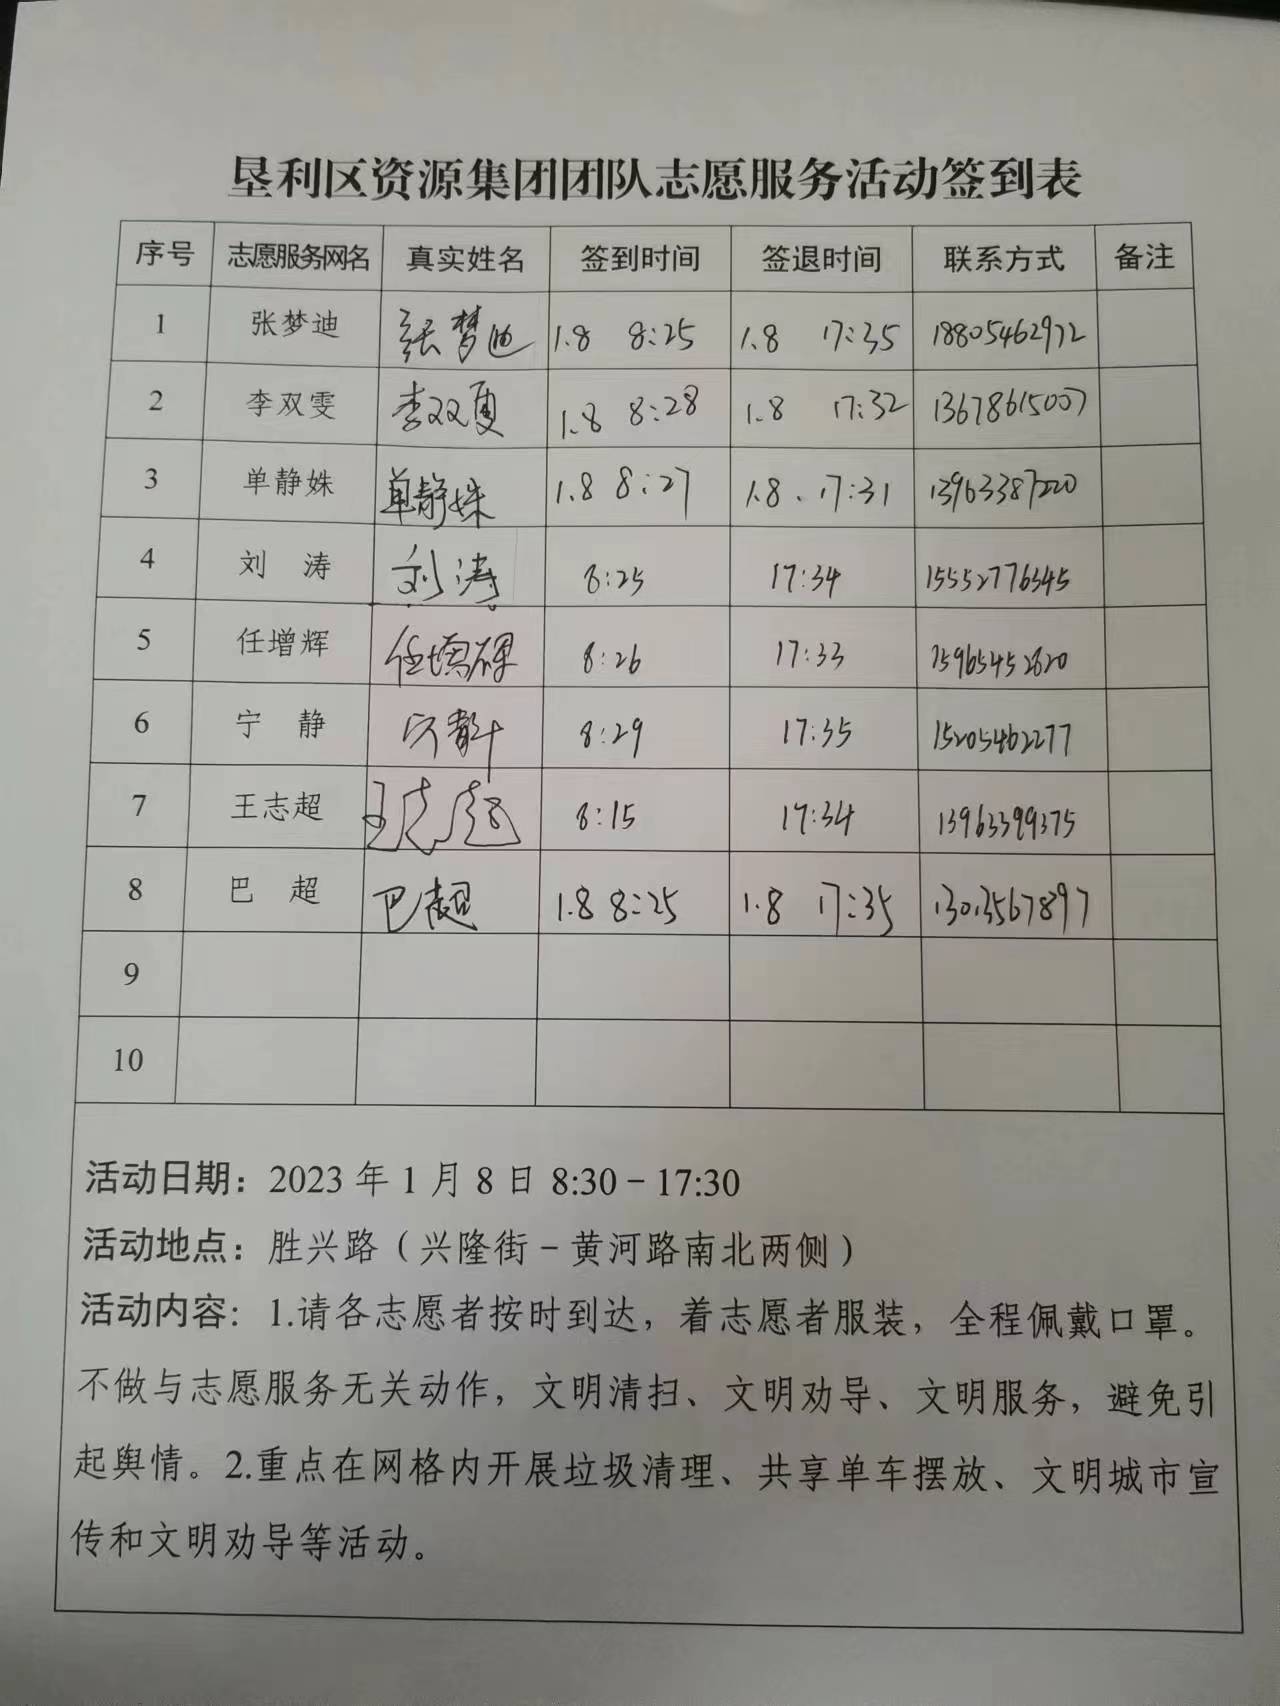 垦利区资源集团团队志愿服务活动签到表
序号 志愿服务网名 真实姓名 签到时间 签退时间 联系方式 备注
1 张梦迪 张梦迪 1.8 8:25 1.8 17:35 18805462972
2 李双雯 李双雯 1.8 8:28 1.8 17:32 13678615007
3 单静姝 单静姝 1.8 8:27 1.8. 17:31 13963387220
4 刘 涛 刘涛 8:25 17:34 15552776345
5 任增辉 任增辉 8:26 17:33 15965452820
6 宁 静 宁静 8:29 17:35 15205462277
7 王志超 王志超 8:15 17:34 13963399375
8 巴 超 巴超 1.8 8:25 1.8 17:35 13013567897
9
10
活动日期：2023 年 1 月 8 日 8:30－17:30
活动地点：胜兴路（兴隆街－黄河路南北两侧）
活动内容：1.请各志愿者按时到达，着志愿者服装，全程佩戴口罩。
不做与志愿服务无关动作，文明清扫、文明劝导、文明服务，避免引
起舆情。2.重点在网格内开展垃圾清理、共享单车摆放、文明城市宣
传和文明劝导等活动。